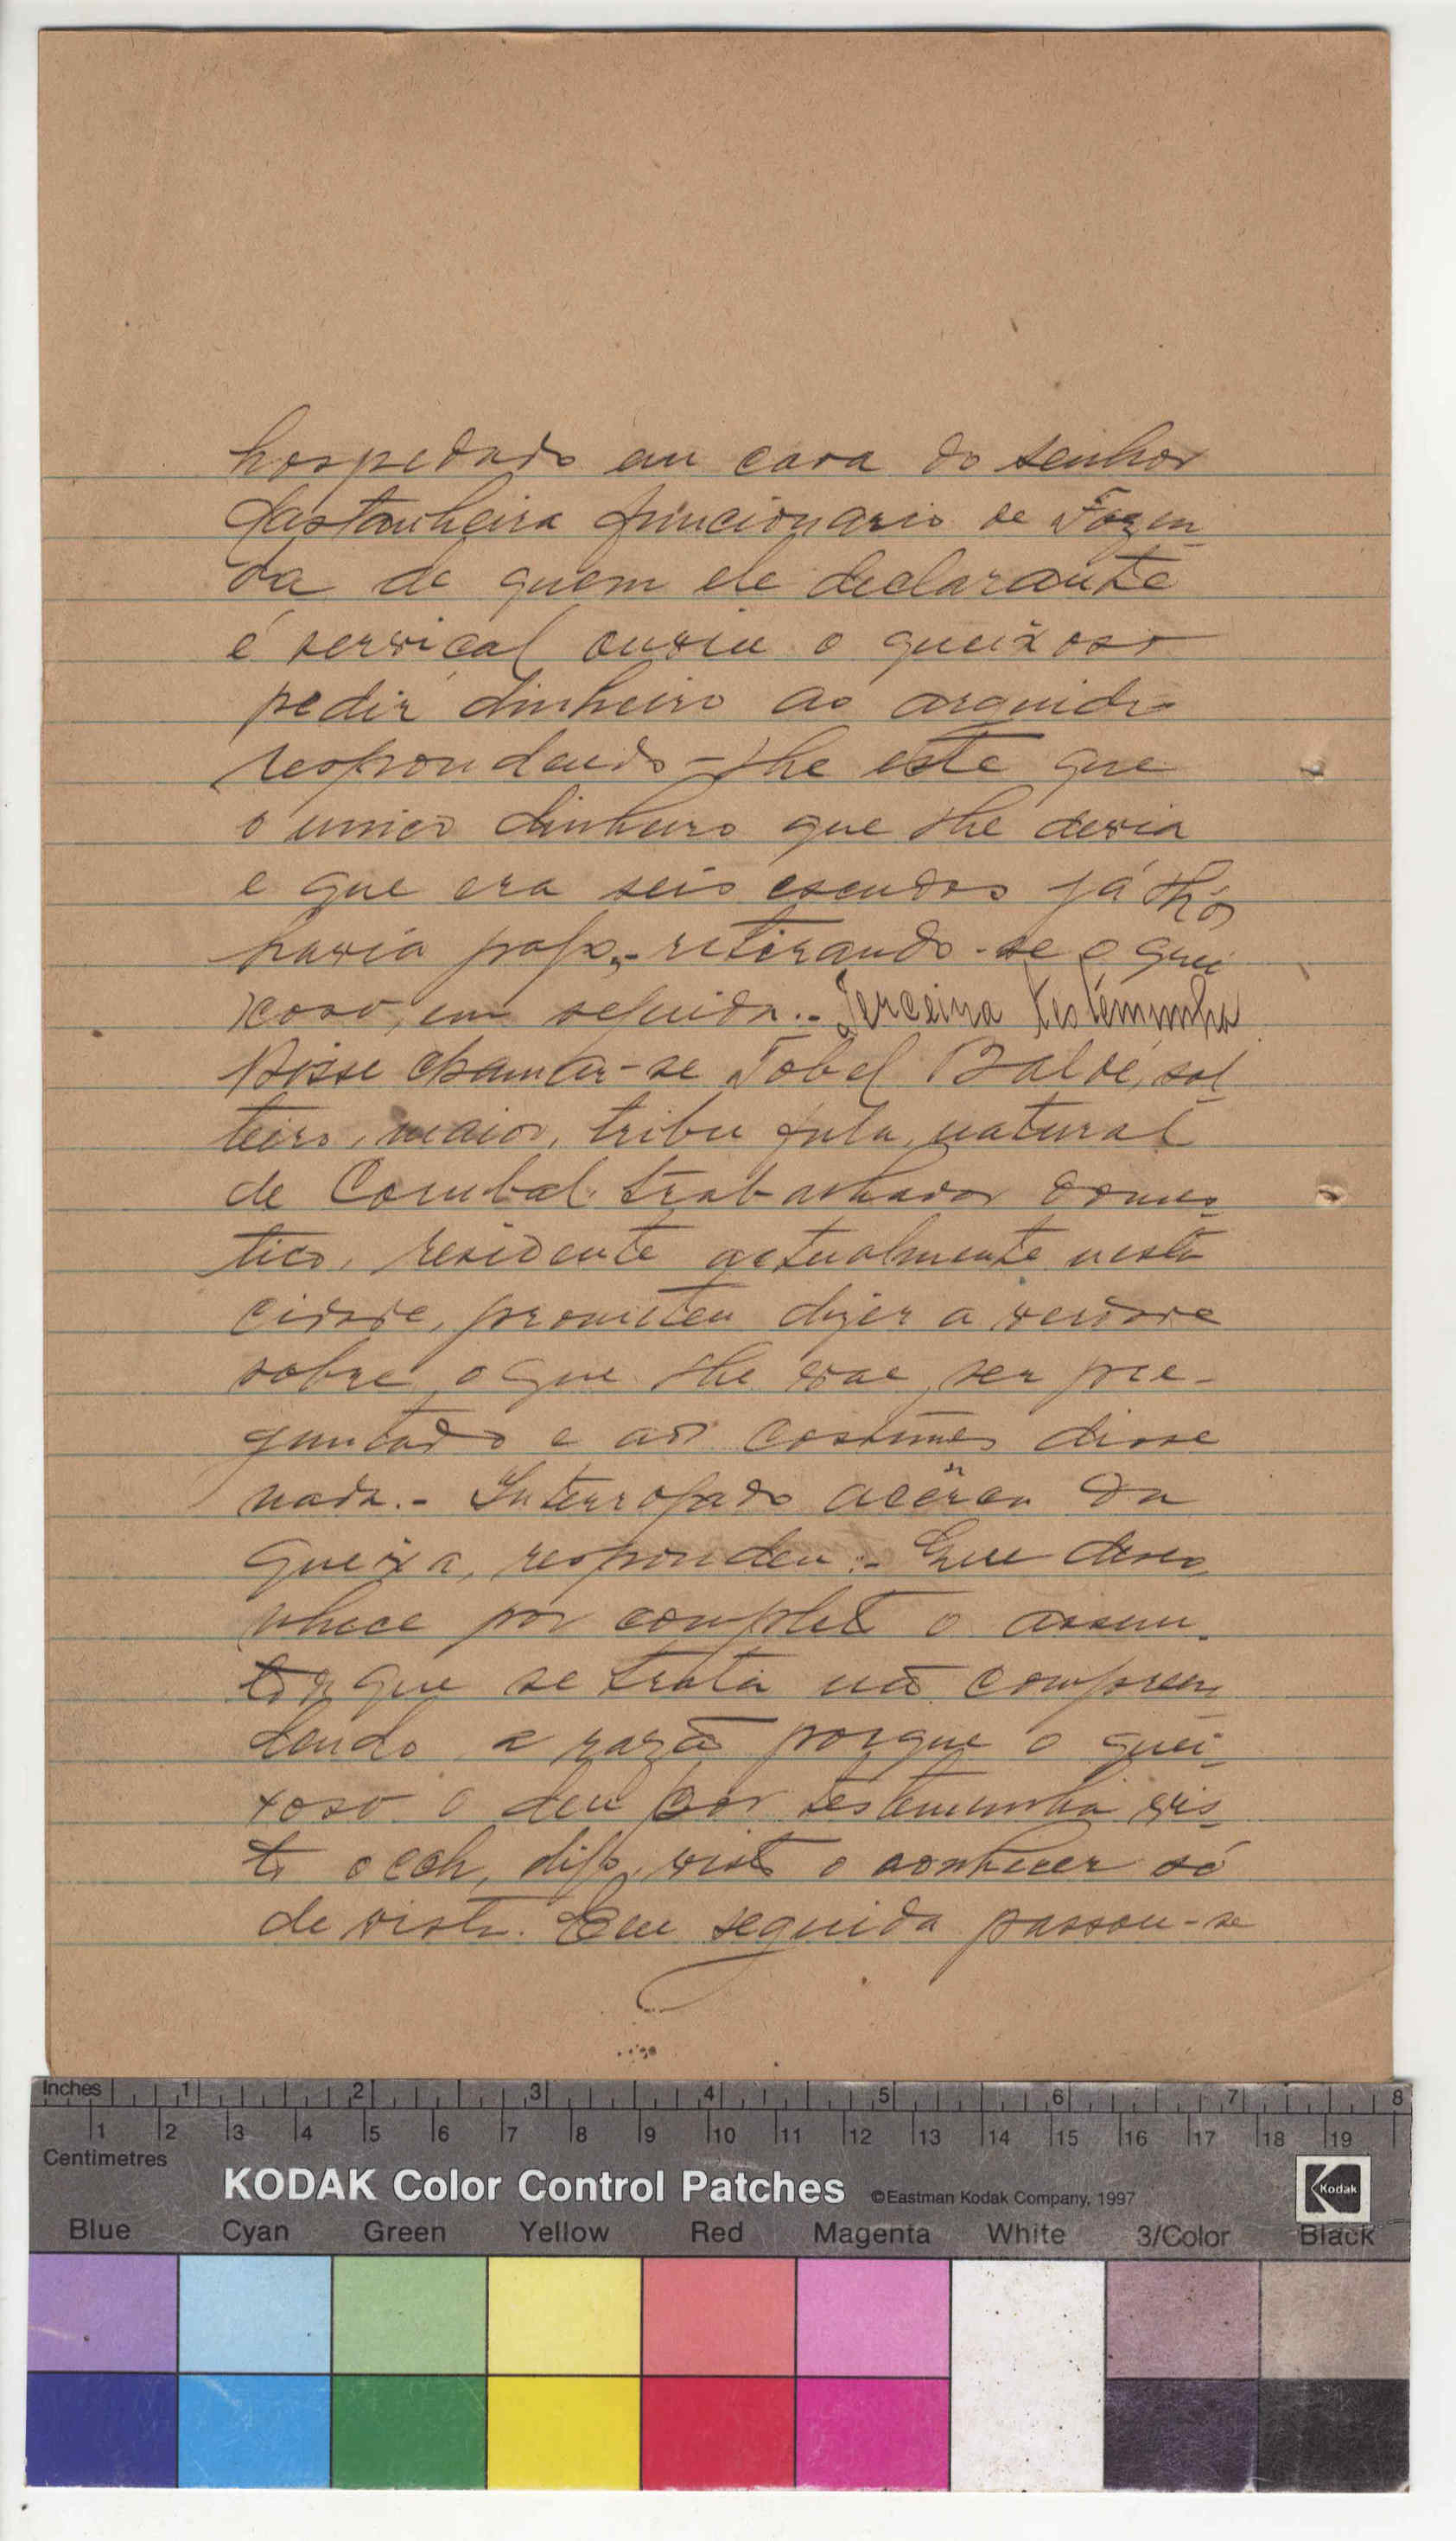 hospedado em casa do senhor
Castanheira funcionario de Fazen-
da de quem ele declarante
é serviçal ouviu o queixoso
pedir dinheiro ao arguido
respondendo-lhe este que
o unico dinheiro que lhe devia
e que era seis escudos já lhos
havia pago, retirando-se o quei
xoso, em seguida.- Terceira testemunha
Disse chamar-se Tobel Baldé, sol
teiro, maior, tribu fula, natural
de Corubal trabalhador domes-
tico, residente actualmente nesta
cidade, prometeu dizer a verdade
sobre o que lhe vae ser pre-
guntado e aos costumes disse
nada.- Interrogado acêrca da
queixa, respondeu:- Que desco-
nhece por completo o assun-
to que se trata não compreen-
dendo a razão porque o quei-
xoso o deu por testemunha vis-
to digo, visto o conhecer só
de vista. Em seguida passou-se
Inches 1 2 3 4 5 6 7 8
1 2 3 4 5 6 7 8 9 10 11 12 13 14 15 16 17 18 19
Centimetres
KODAK Color Control Patches ©Eastman Kodak Company, 1997 Kodak
Blue Cyan Green Yellow Red Magenta White 3/Color Black